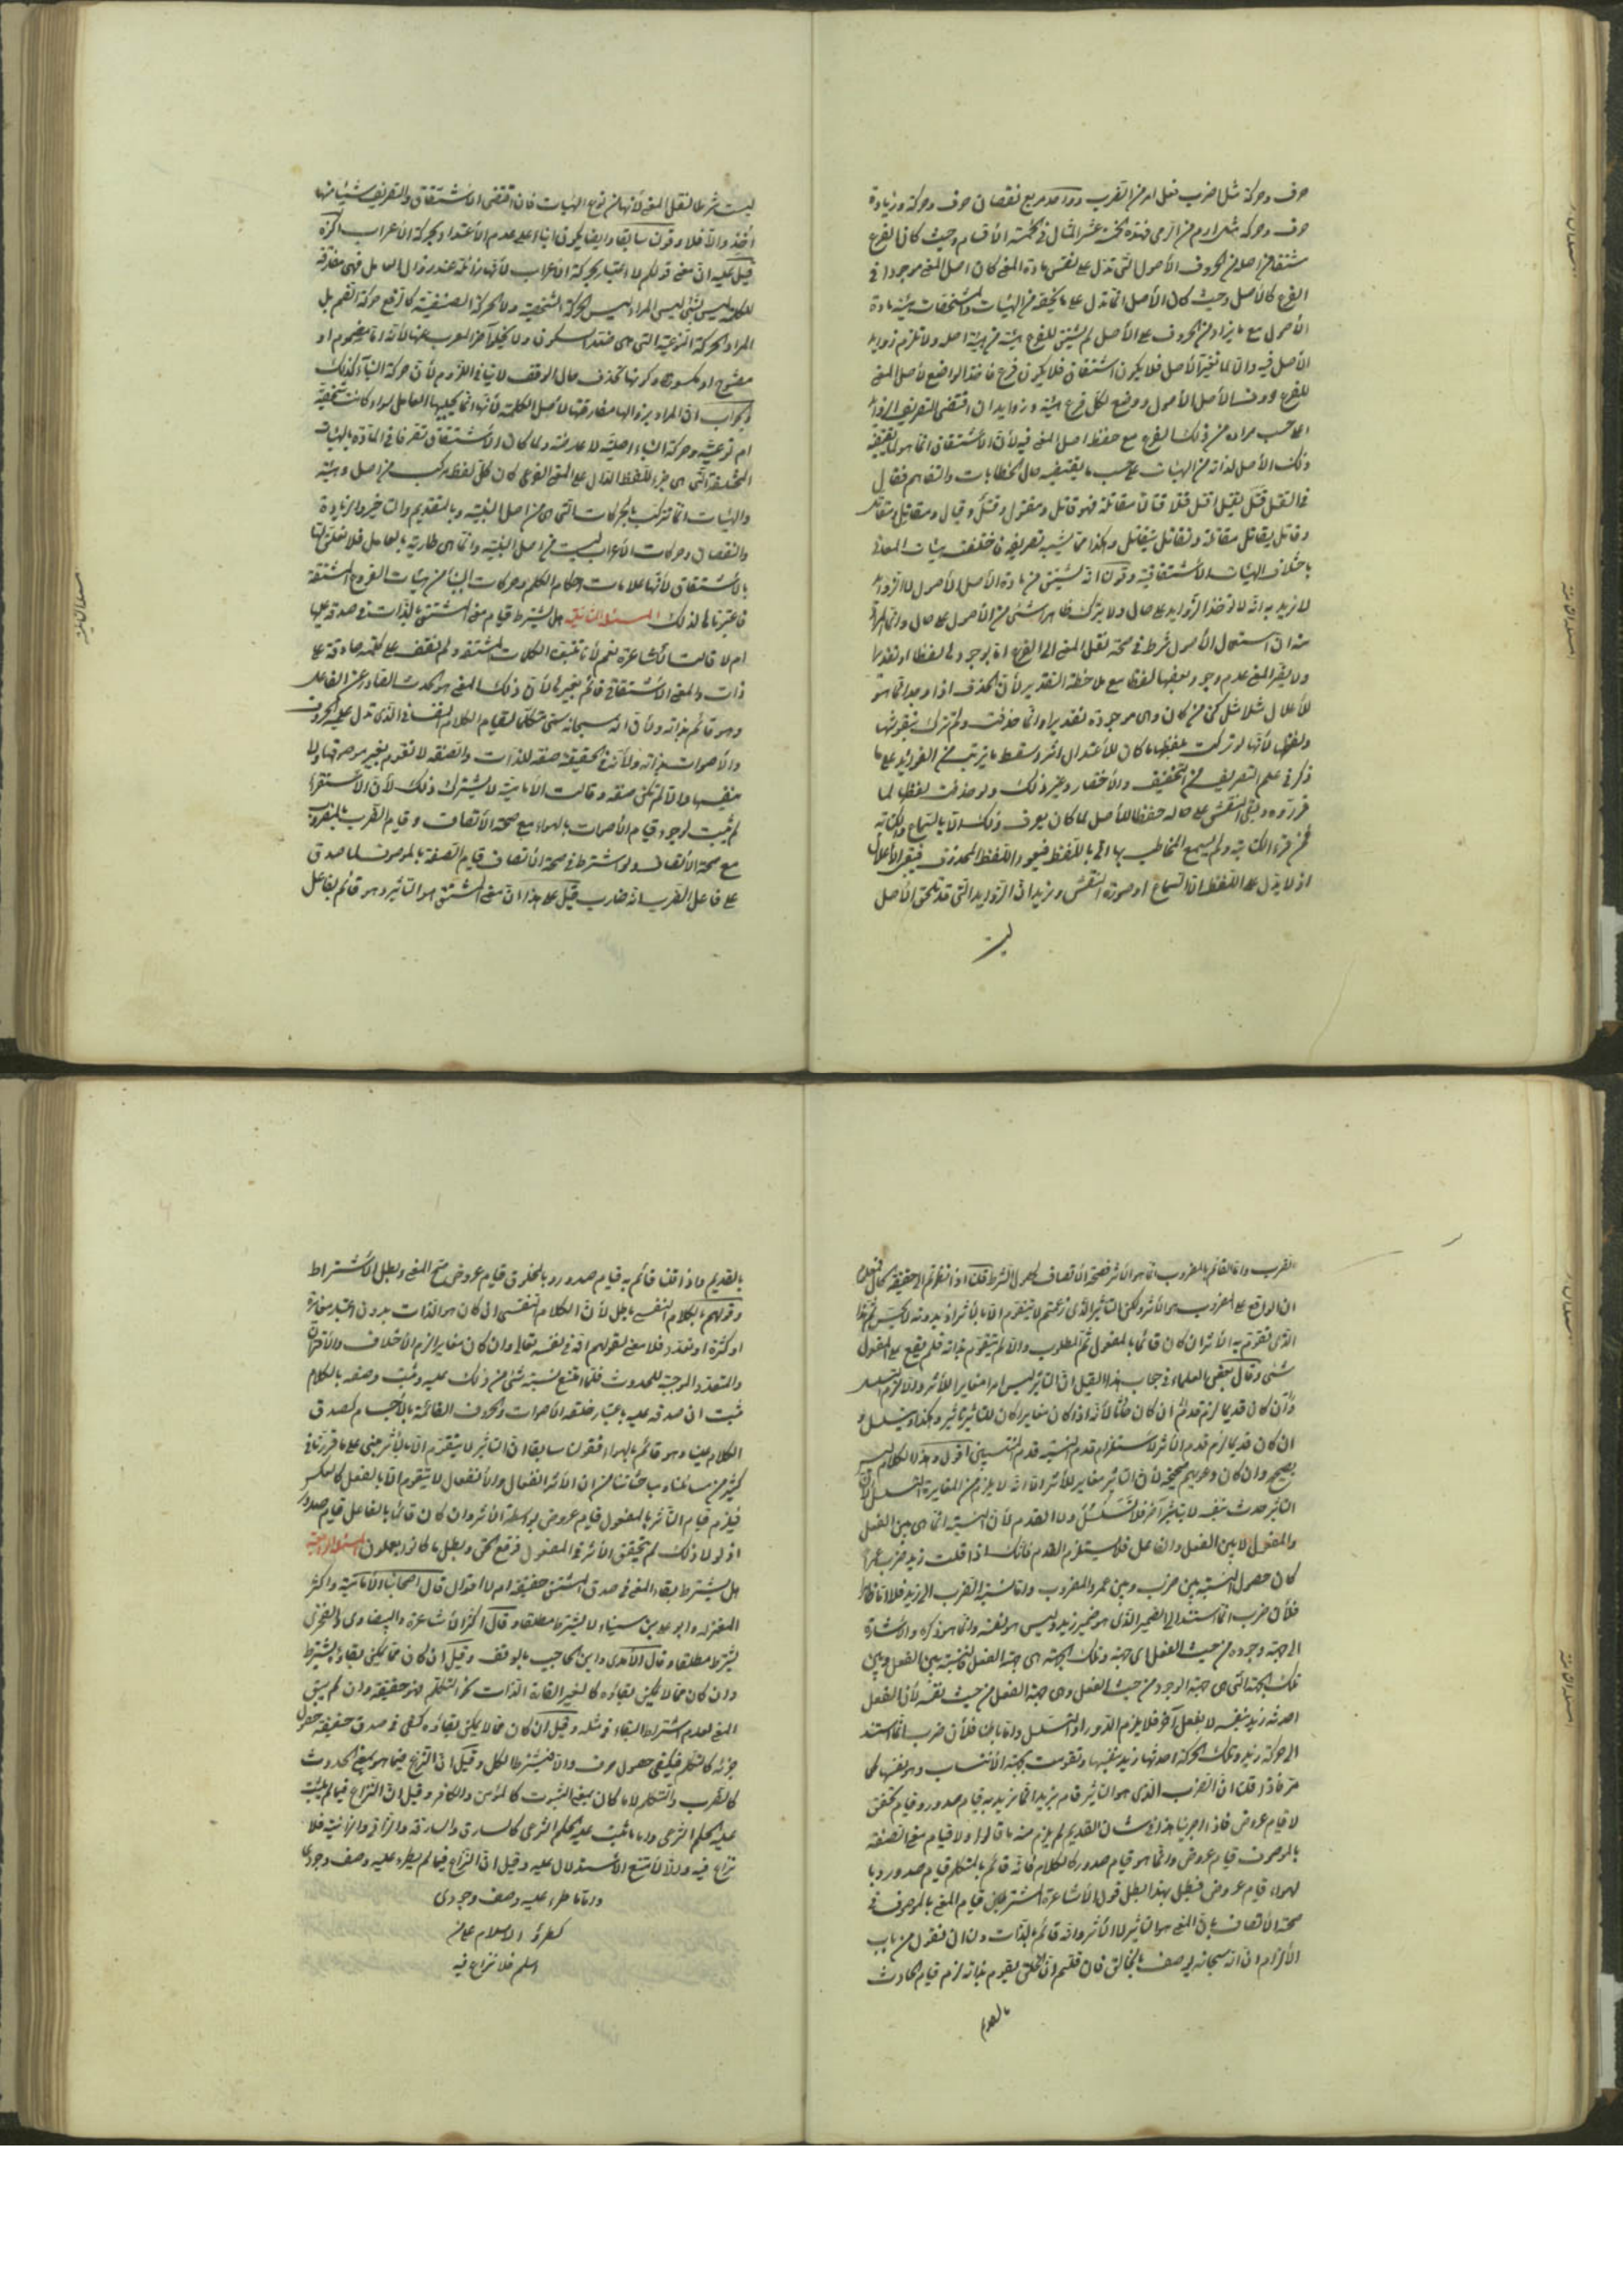 حرف وحركة مثل اضرب فعل امر من الضرب وواحد مع نقصان حرف وحركة وزيادة
حرف وحركة مثل ارم من الرمي فهذه خمسة عشر المثال في خمسة الأقسام وحيث كان الفرع
مشتقا من اصله من الحروف الأصول التي تدل على نفس مادة المعنى كان اصل المعنى موجودا في
الفرع كالأصل وحيث كان الأصل انما تدل على ما يخصّه من الهيئات والمشخصات بهيئة مادة
الأصول مع ما يزاد من الحروف على الأصل لم يشتق للفرع هيئة من هيئة اصله ولا تلزم زوايد
الأصل فيه والا لما تغير الأصل فلا يكون اشتقاق فلا يكون فرع فاخذ الواضع لأصل المعنى
للفرع حروف الأصل الأصول ووضع لكل فرع هيئة وزوايد ان اقتضى التعريف الزوايد
على حسب مراده من ذلك الفرع مع حفظ اصل المعنى فيه لأن الاشتقاق انما هو لما يقتضيه
ذلك الأصل لذاته من الهيئات على حسب ما يقتضيه حال الخطابات والتفاهم فقال
في القتل قتل يقتل اقتل قتلا قاتل مقاتلة فهو قاتل ومقتول وقتل وقيال ومقاتل ومقاتل
وقاتل يقاتل مقاتلة وتقاتل يتقاتل وهكذا مما يشبه تصريفه فاختلفت هيئات المعنى
باختلاف الهيئات الاشتقاقية وقولنا انه يشتق من مادة الأصل الأصول لا الزوايد
لا نريد به انه لا تؤخذ الزوايد على حال ولا يترك ظاهر شيء من الأصول على حال وانما المراد
منه ان استعمال الأصول شرط في صحة نقل المعنى الى الفرع اما بوجودها لفظا او تقديرا
ولا يضر المعنى عدم وجود بعضها لفظا مع ملاحظة التقدير لأن الحذف اذا وجد انما هو
للأعلال مثلا مثل كن من كان وهي موجودة تقديرا وانما حذفت ولم تترك بنقوشها
ولفظها لأنها لو تركت بلفظها ما كان للأعتدال اثر وسقط ما يترتب من الفوائد على ما
ذكر في علم التصريف من التخفيف والأختصار وغير ذلك ولو حذفت لفظا لما
قرروه وبقي النقش على حاله حفظا للأصل لما كان يعرف ذلك الا بالسماع والكتابة
فمن قرء الكتابة ولم يسمع المخاطب بها اتى باللفظ فيعود اللفظ المحذوف فيبقى الأعلال
اذ لا يدل على اللفظ الا السماع او صورة النقش ونريد ان الزوايد التي قد تلحق الأصل
ليست
ليست شرطا لنقل المعنى لأنها من نوع الهيئات فان اقتضى الاشتقاق والتعريف شيئا منها
أخذ والا فلا وقولنا سابقا وايضا يكون ابتناء على عدم الأعتداد بحركة الأعراب الخ
قيل عليه ان معنى قولكم لا اعتبار بحركة الأعراب لأنها زائلة عند زوال العامل فهي مفارقة
للكلمة ليس بشيء ليس المراد ليس الحركة الشخصية ولا الحركة الصنفية كالرفع حركة الضم بل
المراد الحركة النوعية التي هي ضد السكون ولا يخلو آخر المعرب عنها لأنه اما مضموم او
مفتوح او مكسور وكونها تحذف حال الوقف لا ينافي اللزوم لأن حركة البناء كذلك
والجواب ان المراد بزوالها مفارقتها لأصل الكلمة لأنها انما يجلبها العامل سواء كانت شخصية
ام نوعية وحركة البناء اصلية لا عارضة ولما كان الاشتقاق تصرفا في المادة بالهيئات
المختلفة التي هي جزء اللفظ الدال على المعنى النوعي كان كل لفظ مركب من اصل وهيئة
والهيئات انما تتركب بالحركات التي هي من اصل البنية وبالتقديم والتاخير والزيادة
والنقصان وحركات الأعراب ليست من اصل البنية وانما هي طارية بالعامل فلا تعلق لها
بالأشتقاق لأنها علامات احكام الكلم وحركات البناء من هيئات الفروع المشتقة
فاعتبرناها لذلك المسئلة الثانية هل يشترط قيام معنى المشتق بالذات في صدقه عليها
ام لا قالت الأشاعرة نعم لأنا تتبعنا الكلمات المشتقة ولم نقف على كلمة صادقة على
ذات والمعنى الاشتقاقي قائم بغيرها لأن ذلك المعنى هو الحدث الصادر عن الفاعل
وهو قائم بذاته ولأن الله سبحانه سمي متكلما لقيام الكلام النفساني الذي تدل عليه الحروف
والأصوات بذاته ولأنه في الحقيقة صفة للذات والصفة لا تقوم بغير موصوفها ولا
بنفسها والا لم تكن صفة وقالت الأمامية لا يشترك ذلك لأن الاستقراء
لم يثبت لوجود قيام الأصوات بالهواء مع صحة الأتصاف وقيام الضرب بالمضروب
مع صحة الأتصاف ولو اشترط في صحة الأتصاف قيام الصفة بالموصوف لما صدق
على فاعل الضرب انه ضارب قيل على هذا ان معنى المشتق هو التاثير وهو قائم بفاعل
الضرب واما القائم بالمضروب انما هو الأثر فصحة الأتصاف لحصول الشرط قلنا اذا نظرتم الى حقيقة الحال فتعلموا
ان الواقع على المضروب هو الأثر ولكن التاثير الذي زعمتم لا يتقوم الا بالأثر اذ بدونه ليس ثم هذا
الذي تقوم به الأثر ان كان قائما بالمفعول ثم المطلوب والا لم يتقوم بذاته فلم يقع على المفعول
شيء وقال بعض العلماء في جواب هذا القيل ان التاثير ليس امرا مغايرا للأثر والا لزم التسلسل
وأن كان قديما لزم قدم ان كان حادثا لأنه اذا كان مغايرا كان للتاثير تاثير وهكذا ويتسلسل و
ان كان قديما لزم قدم الأثر لأستلزام قدم النسبة قدم المنتسبين اقول وهذا الكلام ليس
بصحيح وان كان دعويهم صحيحة لأن التاثير مغاير للأثر الا انه لا يلزم من المغايرة التسلسل لأن
التاثير حدث بنفسه لا بتاثير آخر فلا تسلسل ولا القدم لأن النسبة انما هي بين الفعل
والمفعول لا بين الفعل والفاعل فلا يستلزم القدم فانك اذا قلت زيد ضرب عمرا
كان حصول النسبة بين ضرب وبين عمرو المضروب واما نسبة الضرب الى زيد فلا
فلأن ضرب انما استند الى الضمير الذي هو ضمير زيد وليس هو نفسه وانما هو ذكره والأشارة
الى جهة وجوده من حيث الفعل اي جهة وتلك الجهة هي جهة الفعل فالنسبة بين الفعل وبين
تلك الجهة التي هي جهة الوجود من حيث الفعل وهي جهة الفعل من حيث نفسه لأن الفعل
احدثه زيد بنفسه لا بفعل آخر فلا يلزم الدور او التسلسل واما فلأن ضرب انما استند
الى حركة زيد وتلك الحركة احدثها زيد بنفسها وتقومت بجهة الأنتساب وهو نفسها كما
مر فاذا قلنا ان الضرب الذي هو التاثير قام بزيد انما نريد به قيام صدور وقيام تحقق
لا قيام عروض فاذا اجرينا هذا في شان القديم لم يلزم منه ما قالوا ولا قيام معنى الصفة
بالموصوف قيام عروض وانما هو قيام صدور كالكلام فانه قائم بالمتكلم قيام صدور وبا
لهواء قيام عروض فبطل بهذا قول الأشاعرة المشترطين قيام المعنى بالموصوف في
صحة الأتصاف بان المعنى هو التاثير لا الأثر وانه قائم بالذات ولنا ان نقول من باب
الألزام ان الله سبحانه يوصف بالخالق فان قلتم ان الخلق يقوم بذاته لزم قيام الحادث
بالقديم
بالقديم واذا قلنا قائم به قيام صدور وبالمخلوق قيام عروض صح المعنى وبطل الأشتراط
وقولهم بالكلام النفسي باطل لأن الكلام النفسي ان كان هو الذات بدون اعتبار مغايرة
او كثرة او تعدد فلا معنى لقولهم انه في نفسه تعالى وان كان مغايرا لزم الأختلاف والأقتران
والتعدد الموجبة للحدوث فلما امتنع نسبة شيء من ذلك عليه وثبت وصفه بالكلام
ثبت ان صدقه عليه باعتبار خلقه الأصوات والحروف القائمة بالأجسام كصدق
الكلام علينا وهو قائم بالهواء فقولنا سابقا ان التاثير لا يتقوم الا بالأثر مبني على ما قررناه في
كثير من مسائلنا ومباحثاتنا من ان الأثر انفعال والأنفعال لا يتقوم الا بالفعل كالعكس
فيلزم قيام التاثير بالمفعول قيام عروض بواسطة الأثر وان كان قائما بالفاعل قيام صدور
اذ لولا ذلك لم يتحقق الأثر في المفعول فوقع الحق وبطل ما كانوا يعملون المسئلة الرابعة
هل يشترط بقاء المعنى في صدق المشتق حقيقة ام لا اقوال قال اصحابنا الأمامية واكثر
المعتزلة وابو علي بن سيناء لا يشترط مطلقا وقال اكثر الأشاعرة والبيضاوي والفخري
يشترط مطلقا وقال الآمدي وابن الحاجب بالوقف وقيل ان كان مما يمكن بقاؤه يشترط
وان كان مما لا يمكن بقاؤه كالغير القارة الذات نحو التكلم فهو حقيقة وان لم يبق
المعنى لعدم اشتراط البقاء في مثله وقيل ان كان مما لا يمكن بقاؤه كفى في صدق حقيقة حصول
جزئه كالتكلم فيكفي حصول حرف والا فيشترط الكل وقيل ان النزاع فيما هو بمعنى الحدوث
كالضرب والتكلم لا ما كان بمعنى الثبوت كالمؤمن والكافر وقيل ان النزاع فيما لم يثبت
عليه الحكم الشرعي واما ما ثبت عليه الحكم الشرعي كالسارق والسارقة والزاني والزانية فلا
نزاع فيه والا لأمتنع الأستدلال عليه وقيل ان النزاع فيما لم يطرء عليه وصف وجودي
واما ما طرء عليه وصف وجودي
كطرؤ الأسلام على من
اسلم فلا نزاع فيه